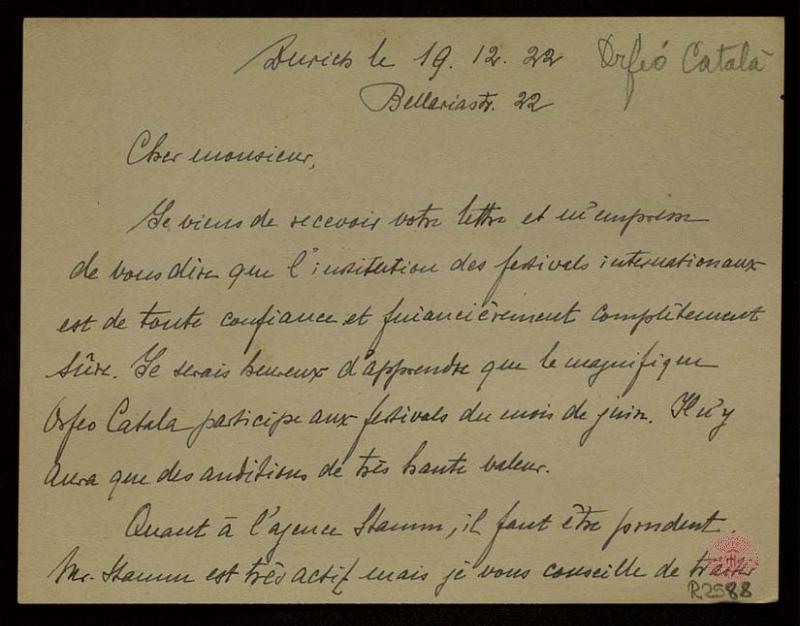 Zurich le 19. 12. 22 Orfeó Català
Bellariastr. 22
Cher monsieur,
Je viens de recevoir votre lettre et m'empresse
de vous dire que l'institution des festivals internationaux
est de toute confiance et financièrement complètement
sûre. Je serais heureux d'apprendre que le magnifique
Orfeo Catala participe aux festivals du mois de juin. Il n'y
aura que des auditions de très haute valeur.
Quant à l'agence Stamm, il faut être prudent.
Mr. Stamm est très actif mais je vous conseille de traiter
R2588